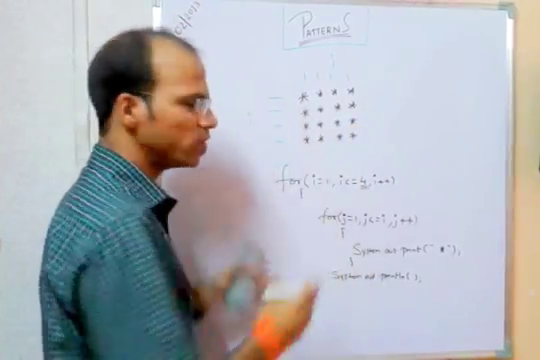 02/2013
PATTERNS
* * * *
* * * *
* * * *
* * * *
for(i=1,i<=4,i++)
{
for(j=1,j<=i,j++)
{
System out print(" * "),
}
System out println(),